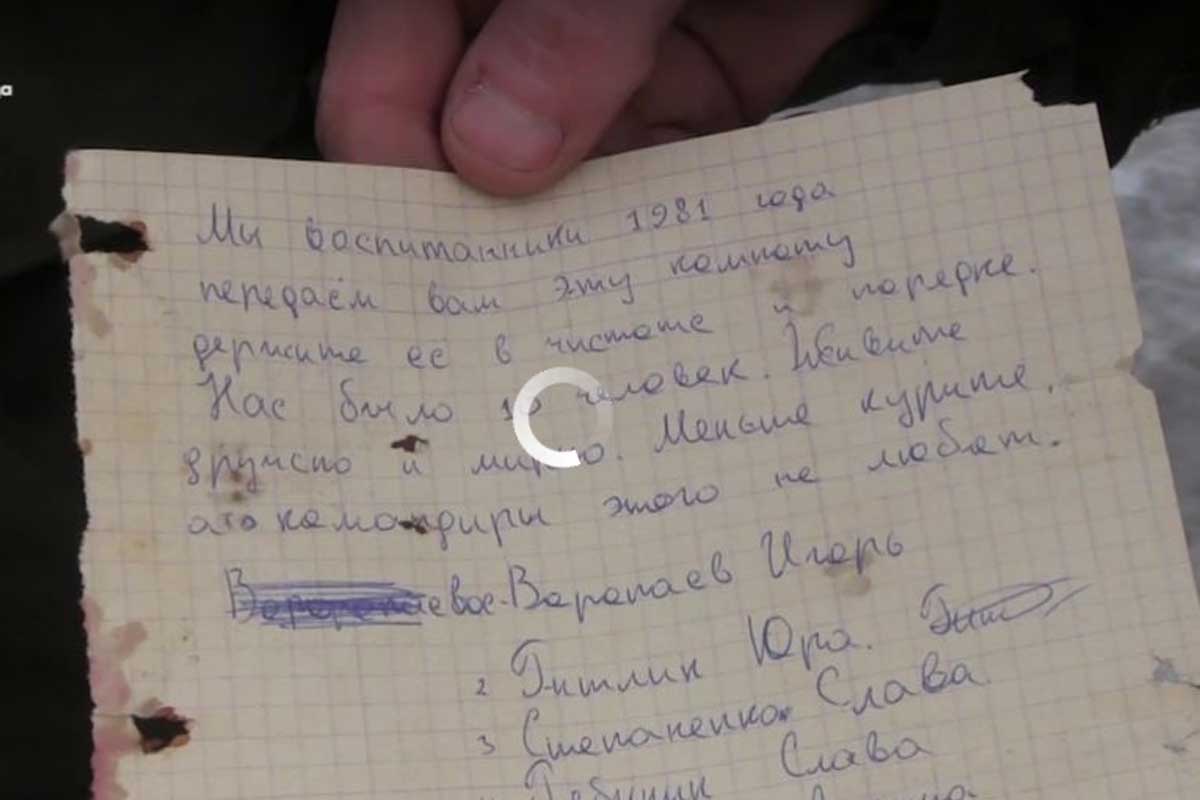 Мы воспитанники 1981 года
передаём вам эту комнату
держите её в чистоте и порядке.
Нас было человек. Живите
дружно и мирно. Меньше курите.
ато командиры этого не любят.
Варапаев Игорь
2 Гитлин Юра.
3 Степаненко Слава
Слава